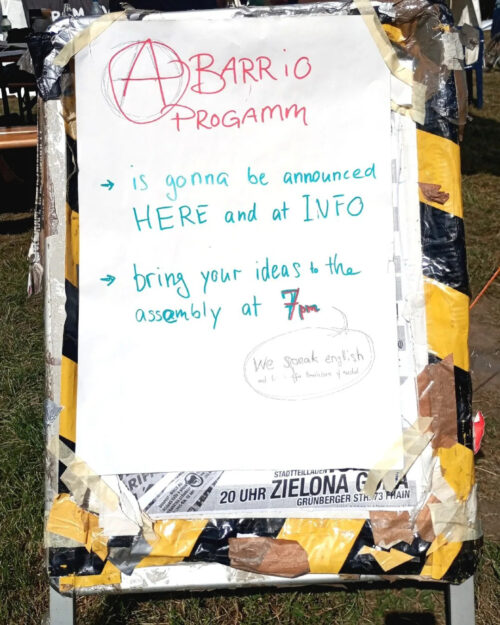 Ⓐ BARRIO
PROGAMM
→ is gonna be announced
HERE and at INFO
→ bring your ideas to the
assembly at 7pm
We speak english
STADTTEILLADEN
20 UHR ZIELONA GORA
GRÜNBERGER STR. 73 FHAIN